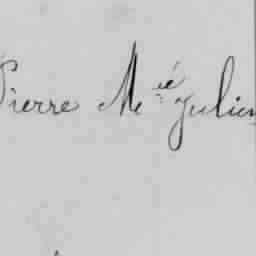 Pierre M.ié Julien